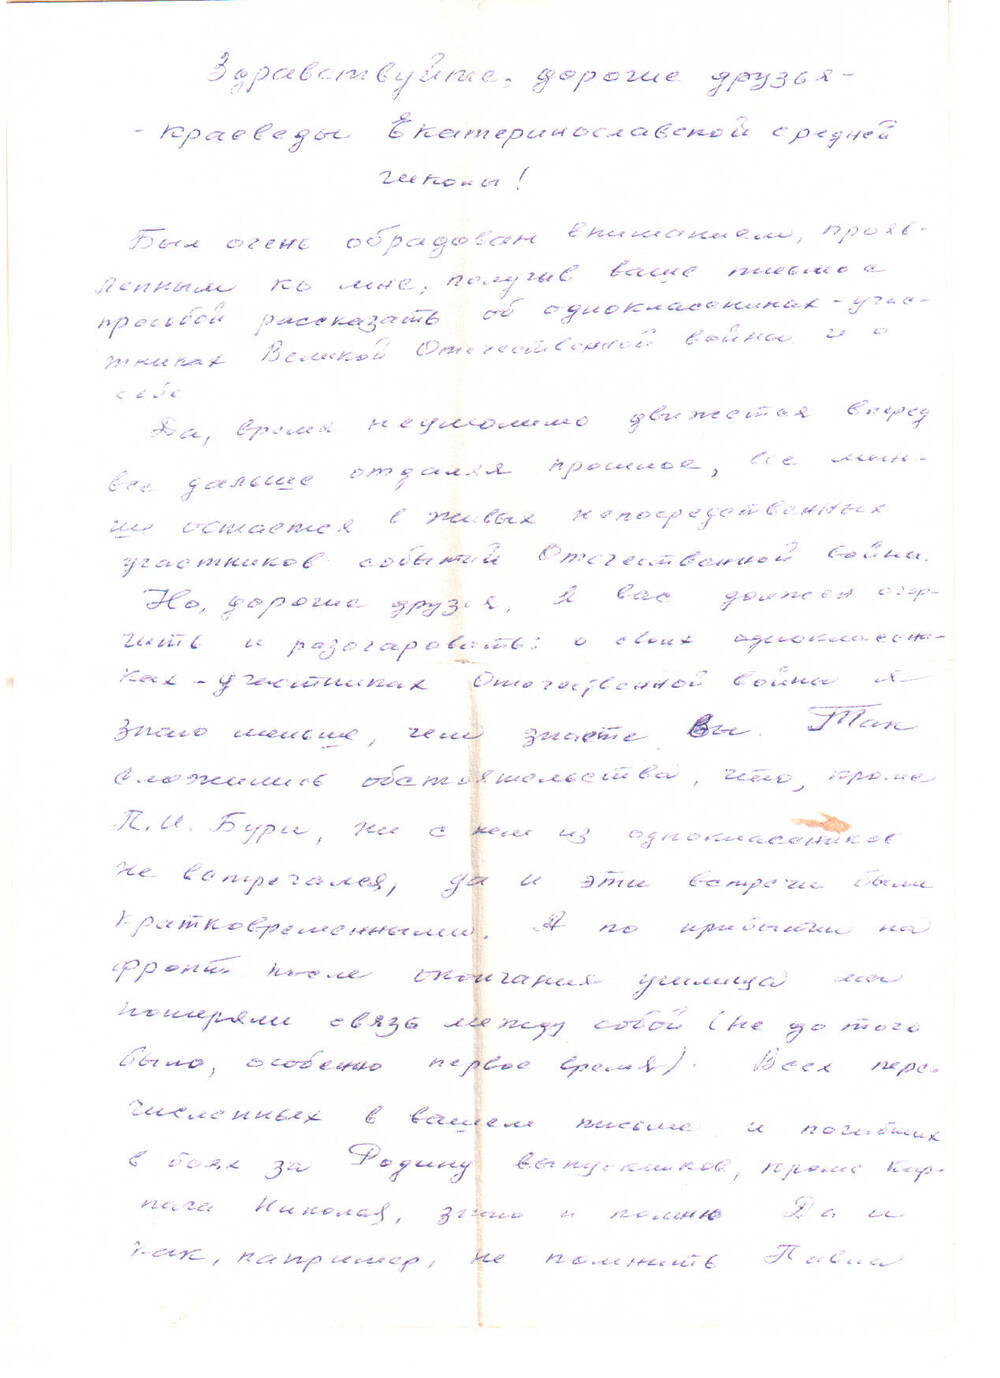 Здравствуйте, дорогие друзья-
- краеведы Екатеринославской средней
школы!
Был очень обрадован вниманием, прояв-
ленным ко мне, получив ваше письмо с
просьбой рассказать об одноклассниках - учас-
тниках Великой Отечественной войны и о
себе
Да, время неумолимо движется вперед
все дальше отдаляя прошлое, все мень-
ше остается в живых непосредственных
участников событий Отечественной войны.
Но, дорогие друзья, я вас должен огор-
чить и разочаровать: о своих одноклассни-
ках - участниках Отечественной войны я
знаю меньше, чем знаете Вы. Так
сложились обстоятельства, что, кроме
П.И. Бури, ни с кем из одноклассников
не встречался, да и эти встречи были
кратковременными. А по прибытии на
фронт после окончания училища мы
потеряли связь между собой (не до того
было, особенно первое время). Всех пере-
численных в вашем письме и погибших
в боях за Родину выпускников, кроме Кир-
пача Николая, знаю и помню Да и
как, например, не помнить Павла